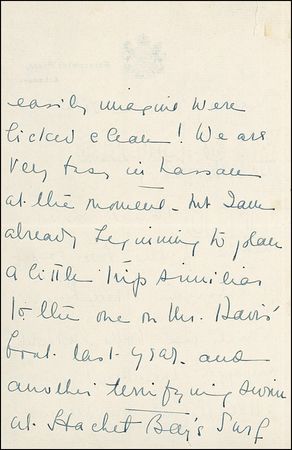 easily imagine were
licked clean! We are
very busy in Nassau
at the moment - but I am
already beginning to plan
a little trip similar
to the one on Mr. Davis'
boat last year. and
another terrifying swim
at Hachet Bay's Surf